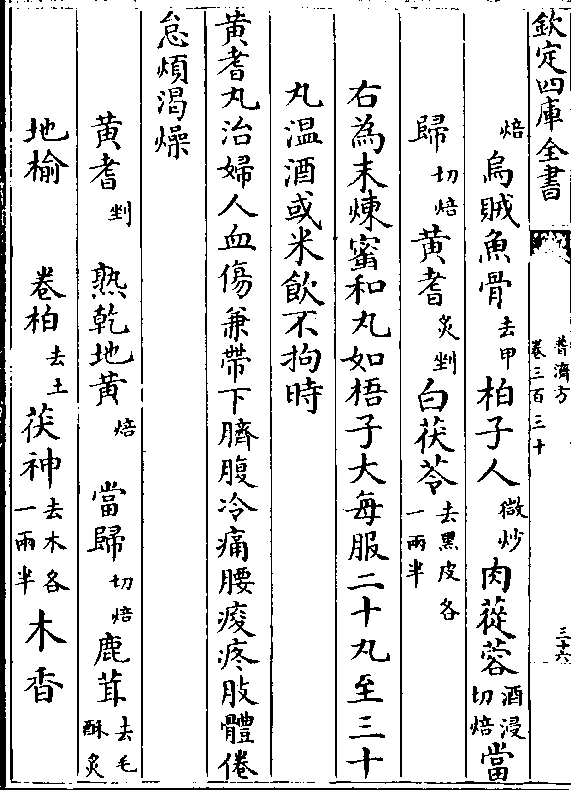 欽定四庫全書
普濟方
卷三百三十
三十六
焙 烏賊魚骨去甲 柏子人微炒 肉蓯蓉酒浸切焙 當
歸切焙 黄耆炙剉 白茯苓去黑皮各一兩半
右為末煉蜜和丸如梧子大每服二十丸至三十
丸温酒或米飲不拘時
黄耆丸治婦人血傷兼帶下臍腹冷痛腰痠疼肢體倦
怠煩渴燥
黄耆剉 熟乾地黄焙 當歸切焙 鹿茸去毛酥炙
地榆 卷柏去土 茯神去木各一兩半 木香